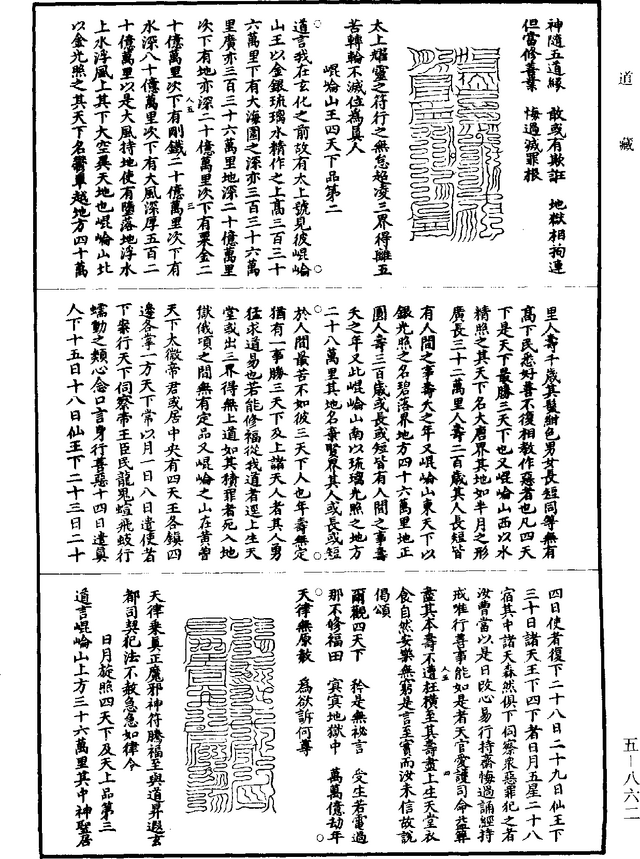 神隨五道緣　敢或有欺誑　地獄相拘連
但當修善業　悔過滅罪根
太上耀靈之符行之無怠超凌三界得離五
苦轉輪不滅位為真人
崐崘山王四天下品第二
道言我在玄化之前故有太上號見彼崐崘
山王以金銀琉璃水精作之上高三百三十
六萬里下有大海圍之深亦三百三十六萬
里廣亦三百三十六萬里地深二十億萬里
次下有地亦深二十億萬里次下有粟金二
十億萬里次下有剛鐵二十億萬里次下有
水深八十億萬里次下有大風深厚五百二
十億萬里以是大風持地使有墮落地浮水
上水浮風上其下大空異天地也崐崘山北
以金光照之其天下名欝單越地方四十萬
里人壽千歲其髮紺色男女長短同等無有
高下民悉好善不復相教作惡者也凡四天
下是天下最勝三天下也又崐崘山西以水
精照之其天下名大唐界其地如半月之形
廣長三十二萬里人壽二百歲其人長短皆
有人間之事壽夭之年又崐崘山東天下以
銀光照之名碧落界地方四十六萬里地正
圓人壽三百歲或長或短皆有人間之事壽
夭之年又此崐崘山南以琉璃光照之地方
二十八萬里其地名棄賢界其人或長或短
於人間最苦不如彼三天下人也年壽無定
猶有一事勝三天下及上諸天人者其人勇
猛求道易也若能修福從我道者逕上生天
堂或出三界得無上道如其積罪者死入地
獄俄頃之間無有定品又崐崘之山在黃曾
天下太微帝君或居中央有四天王各鎮四
邊各掌一方天下常以月一日八日遣使者
下案行天下伺察帝王臣民龍鬼蝖飛蚑行
蠕動之類心念口言身行善惡十四日遣真
人下十五日十八日仙王下二十三日二十
四日使者復下二十八日二十九日仙王下
三十日諸天王下四下者日月五星二十八
宿其中諸天森然俱下伺察衆惡罪犯之者
汝曹當以是日改心易行持齋悔過誦經持
戒雅行善事能如是者天官愛護司命益筭
盡其本壽不遭枉橫至其壽盡上生天堂衣
食自然安樂無窮是言至實而汝未信故說
偈頌
爾觀四天下　矜是無祕言　受生若電過
那不修福田　冥冥地獄中　萬萬億劫年
天律無原赦　為欲訴何尊
天律乘真正魔邪神符騰福至與道昇遐玄
都司契犯法不赦急急如律令
日月旋照四天下及天上品第三
道言崐崘山上方三十六萬里其中神聖居
道藏
五－八六二